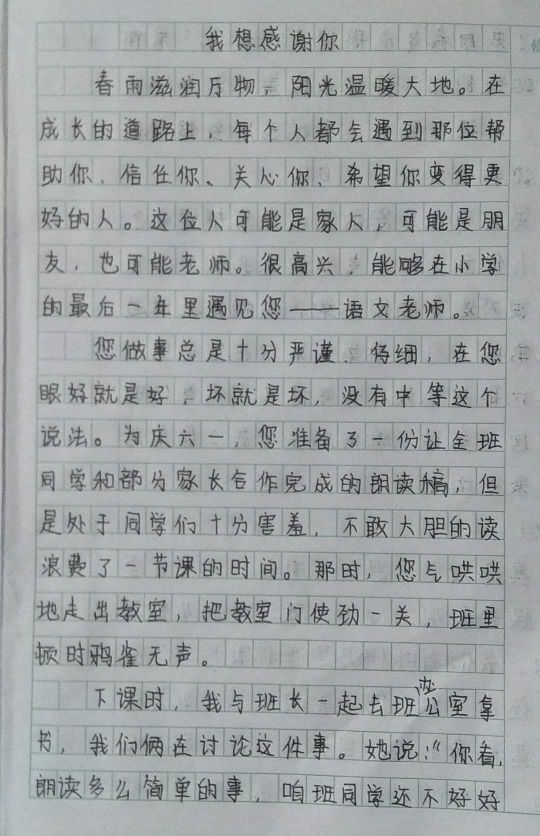 我想感谢你
春雨滋润万物，阳光温暖大地。在
成长的道路上，每个人都会遇到那位帮
助你、信任你、关心你、希望你变得更
好的人。这位人可能是家人，可能是朋
友，也可能老师。很高兴，能够在小学
的最后一年里遇见您——语文老师。
您做事总是十分严谨、仔细，在您
眼好就是好，坏就是坏，没有中等这个
说法。为庆六一，您准备了一份让全班
同学和部分家长合作完成的朗读稿，但
是处于同学们十分害羞，不敢大胆的读
浪费了一节课的时间。那时，您气哄哄
地走出教室，把教室门使劲一关，班里
顿时鸦雀无声。
下课时，我与班长一起去办公室拿
书，我们俩在讨论这件事。她说：“你看，
朗读多么简单的事，咱班同学还不好好